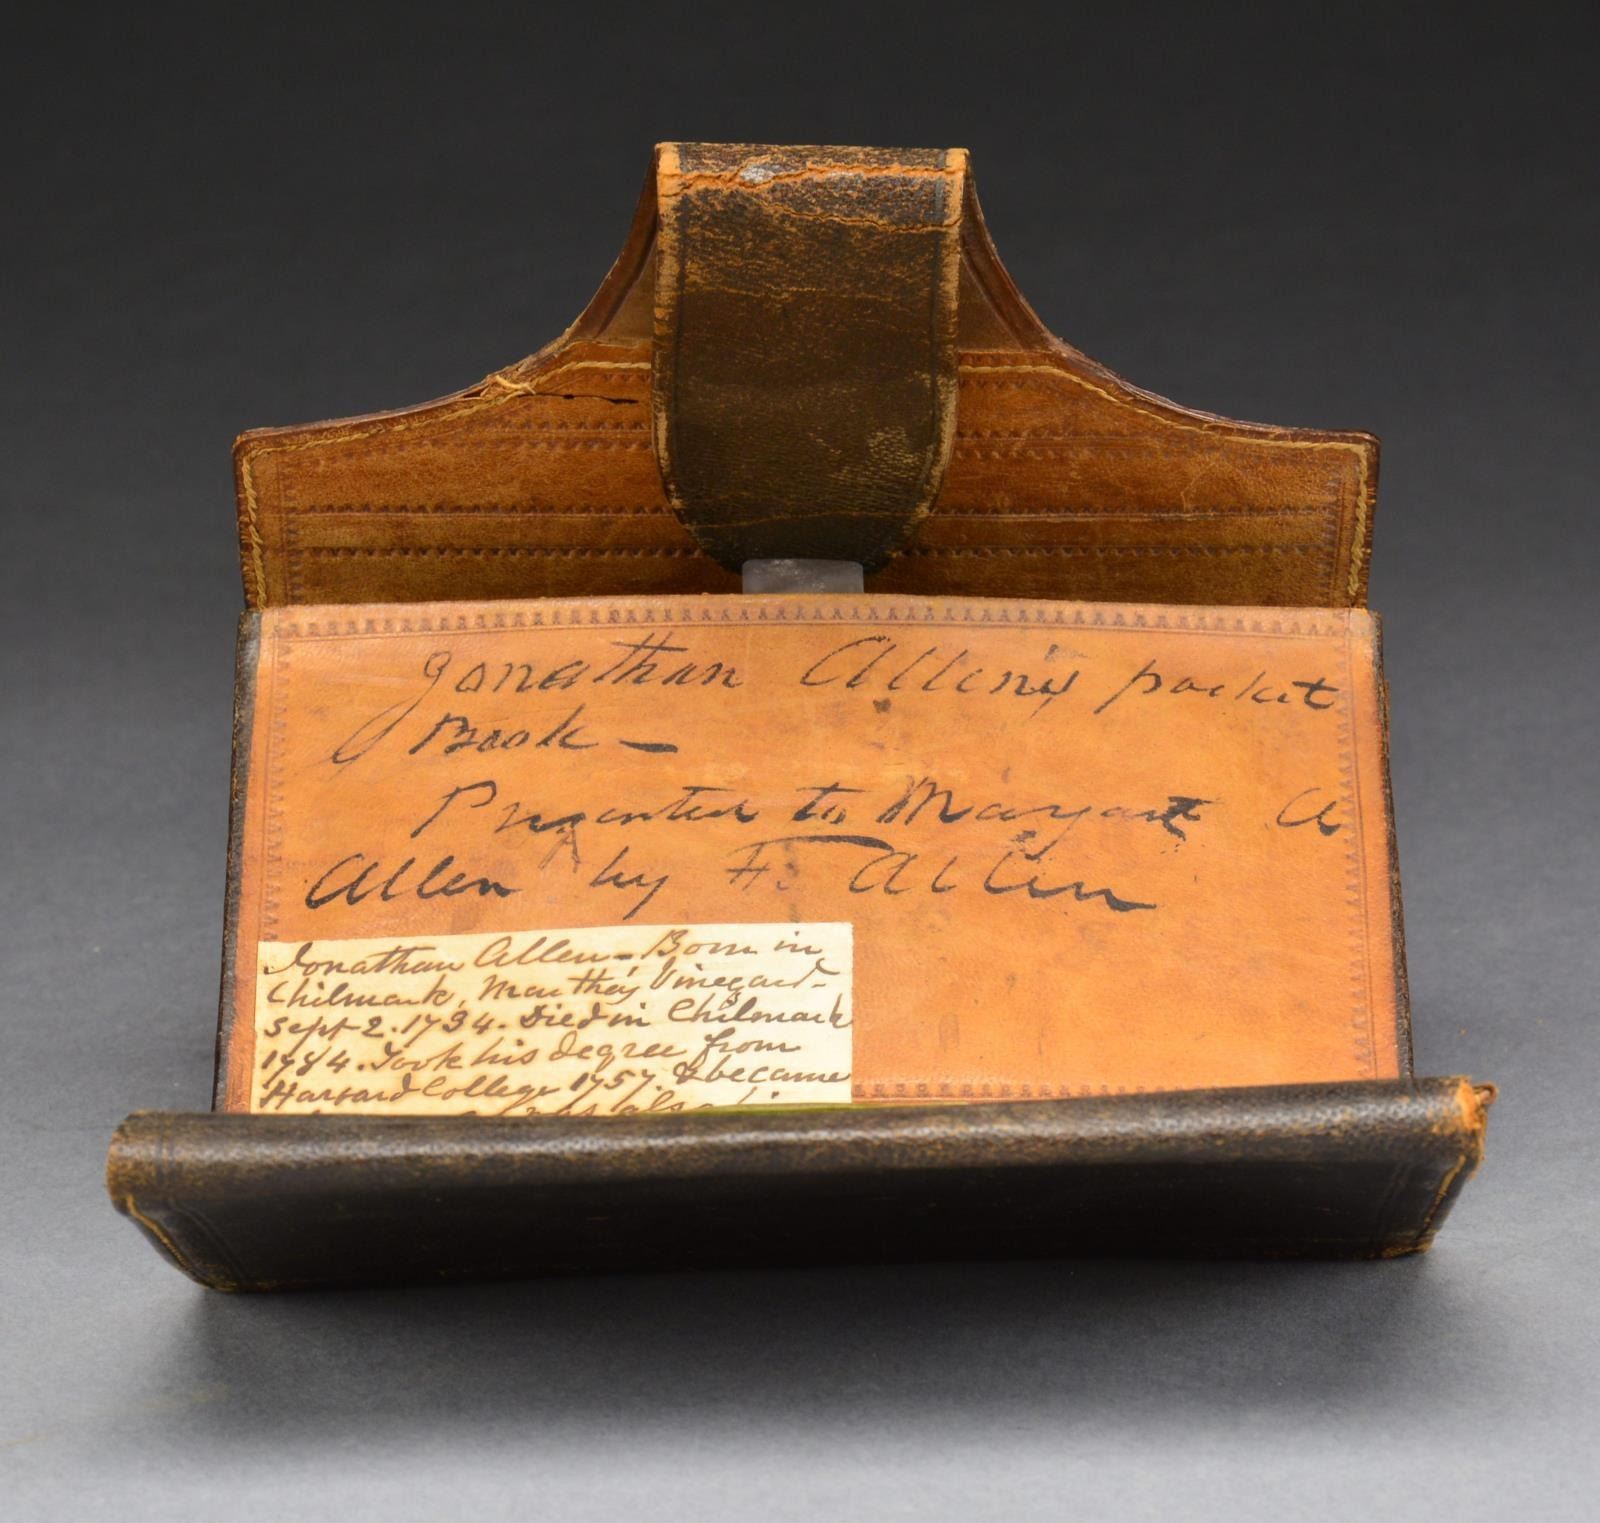 Jonathan Allen's pocket
Book —
Presented to Margaret A
Allen by H. Allen
Jonathan Allen – Born in
Chilmark, Martha's Vineyard –
Sept 2. 1734. Died in Chilmark
1784. Took his degree from
Harvard College 1757. & became
also